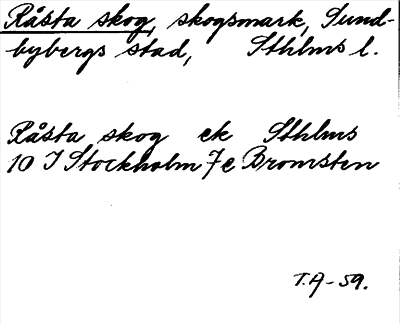 Råsta skog, skogsmark, Sund-
bybergs stad, Sthlms l.
Råsta skog ek Sthlms
10 I Stockholm 7e Bromsten
T.A-59.